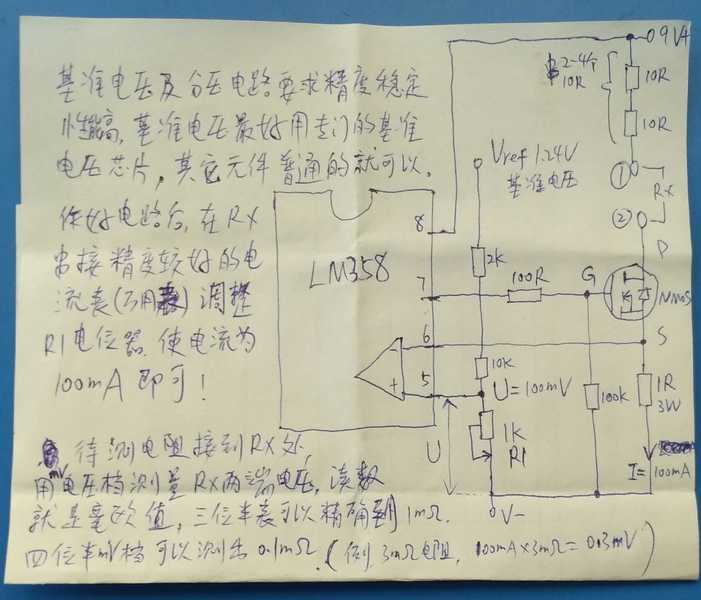 基准电压及分压电路要求精度稳定
性高,基准电压最好用专门的基准
电压芯片,其它元件普通的就可以.
作好电路后,在RX
串接精度较好的电
流表(万用表)调整
R1电位器.使电流为
100mA即可!
待测电阻接到RX处,
用mV电压档测量RX两端电压,读数
就是毫欧值,三位半表可以精确到1mΩ.
四位半mV档可以测出0.1mΩ.(例3mΩ电阻,100mA×3mΩ=0.3mV)
9V+
串2-4个
10R
10R
10R
Vref 1.24V
基准电压
①
RX
②
8
D
2K
LM358
7
100R
G
NMOS
6
S
10K
5
+
U=100mV
100k
1R
3W
U
1K
R1
I=100mA
V-